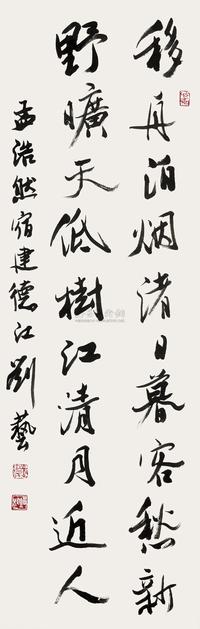 移舟泊烟渚日暮客愁新
野曠天低樹江清月近人
孟浩然宿建德江劉藝